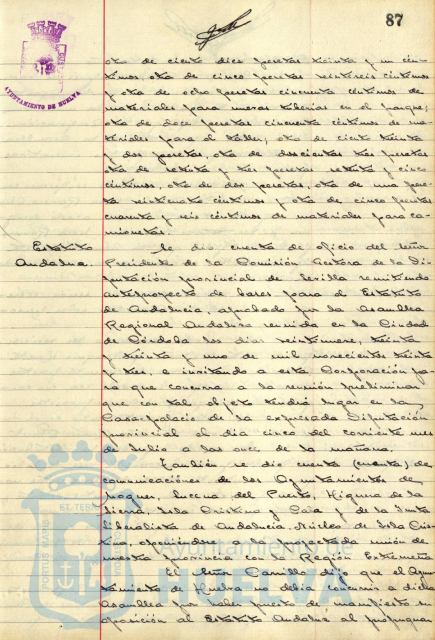 87
AYUNTAMIENTO DE HUELVA
otra de ciento diez pesetas treinta y un cén-
timos, otra de cinco pesetas veintiseis céntimos
y otra de ocho pesetas cincuenta céntimos de
materiales para nuevas tuberias en el parque;
otra de doce pesetas cincuenta céntimos de ma-
teriales para el taller; otra de ciento treinta
y dos pesetas, otra de doscientas tres pesetas
otra de setenta y tres pesetas setenta y cinco
céntimos, otra de dos pesetas, otra de una pese-
ta veinticuatro céntimos y otra de cinco pesetas
cuarenta y seis céntimos de materiales para ca-
mionetas.
Estatuto
Andaluz.
Se dio cuenta de oficio del señor
Presidente de la Comisión Gestora de la Di-
putación provincial de Sevilla remitiendo
anteproyecto de bases para el Estatuto
de Andalucia, aprobado por la Asamblea
Regional Andaluza reunida en la Ciudad
de Córdoba los dias veintinueve, treinta
y treinta y uno de mil novecientos treinta
y tres, e invitando a esta Corporación pa-
ra que concurra a la reunión preliminar
que con tal objeto tendrá lugar en la
Casa-palacio de la expresada Diputación
provincial el dia cinco del corriente mes
de Julio a las once de la mañana.
También se dio cuenta (cuenta) de
comunicaciones de los Ayuntamientos de
Moguer, Lucena del Puerto, Higuera de la
Sierra, Isla Cristina y Cala y de la Junta
Liberalista de Andalucia. Núcleo de Isla Cris-
tina, oponiéndose a la proyectada unión de
nuestra provincia con la Región Extremeña
El señor Carrillo dijo que el Ayun-
tamiento de Huelva no debia concurrir a dicha
Asamblea por haber puesto de manifiesto su
oposición al Estatuto Andaluz al propugnar
Ayuntamiento de
HUELVA